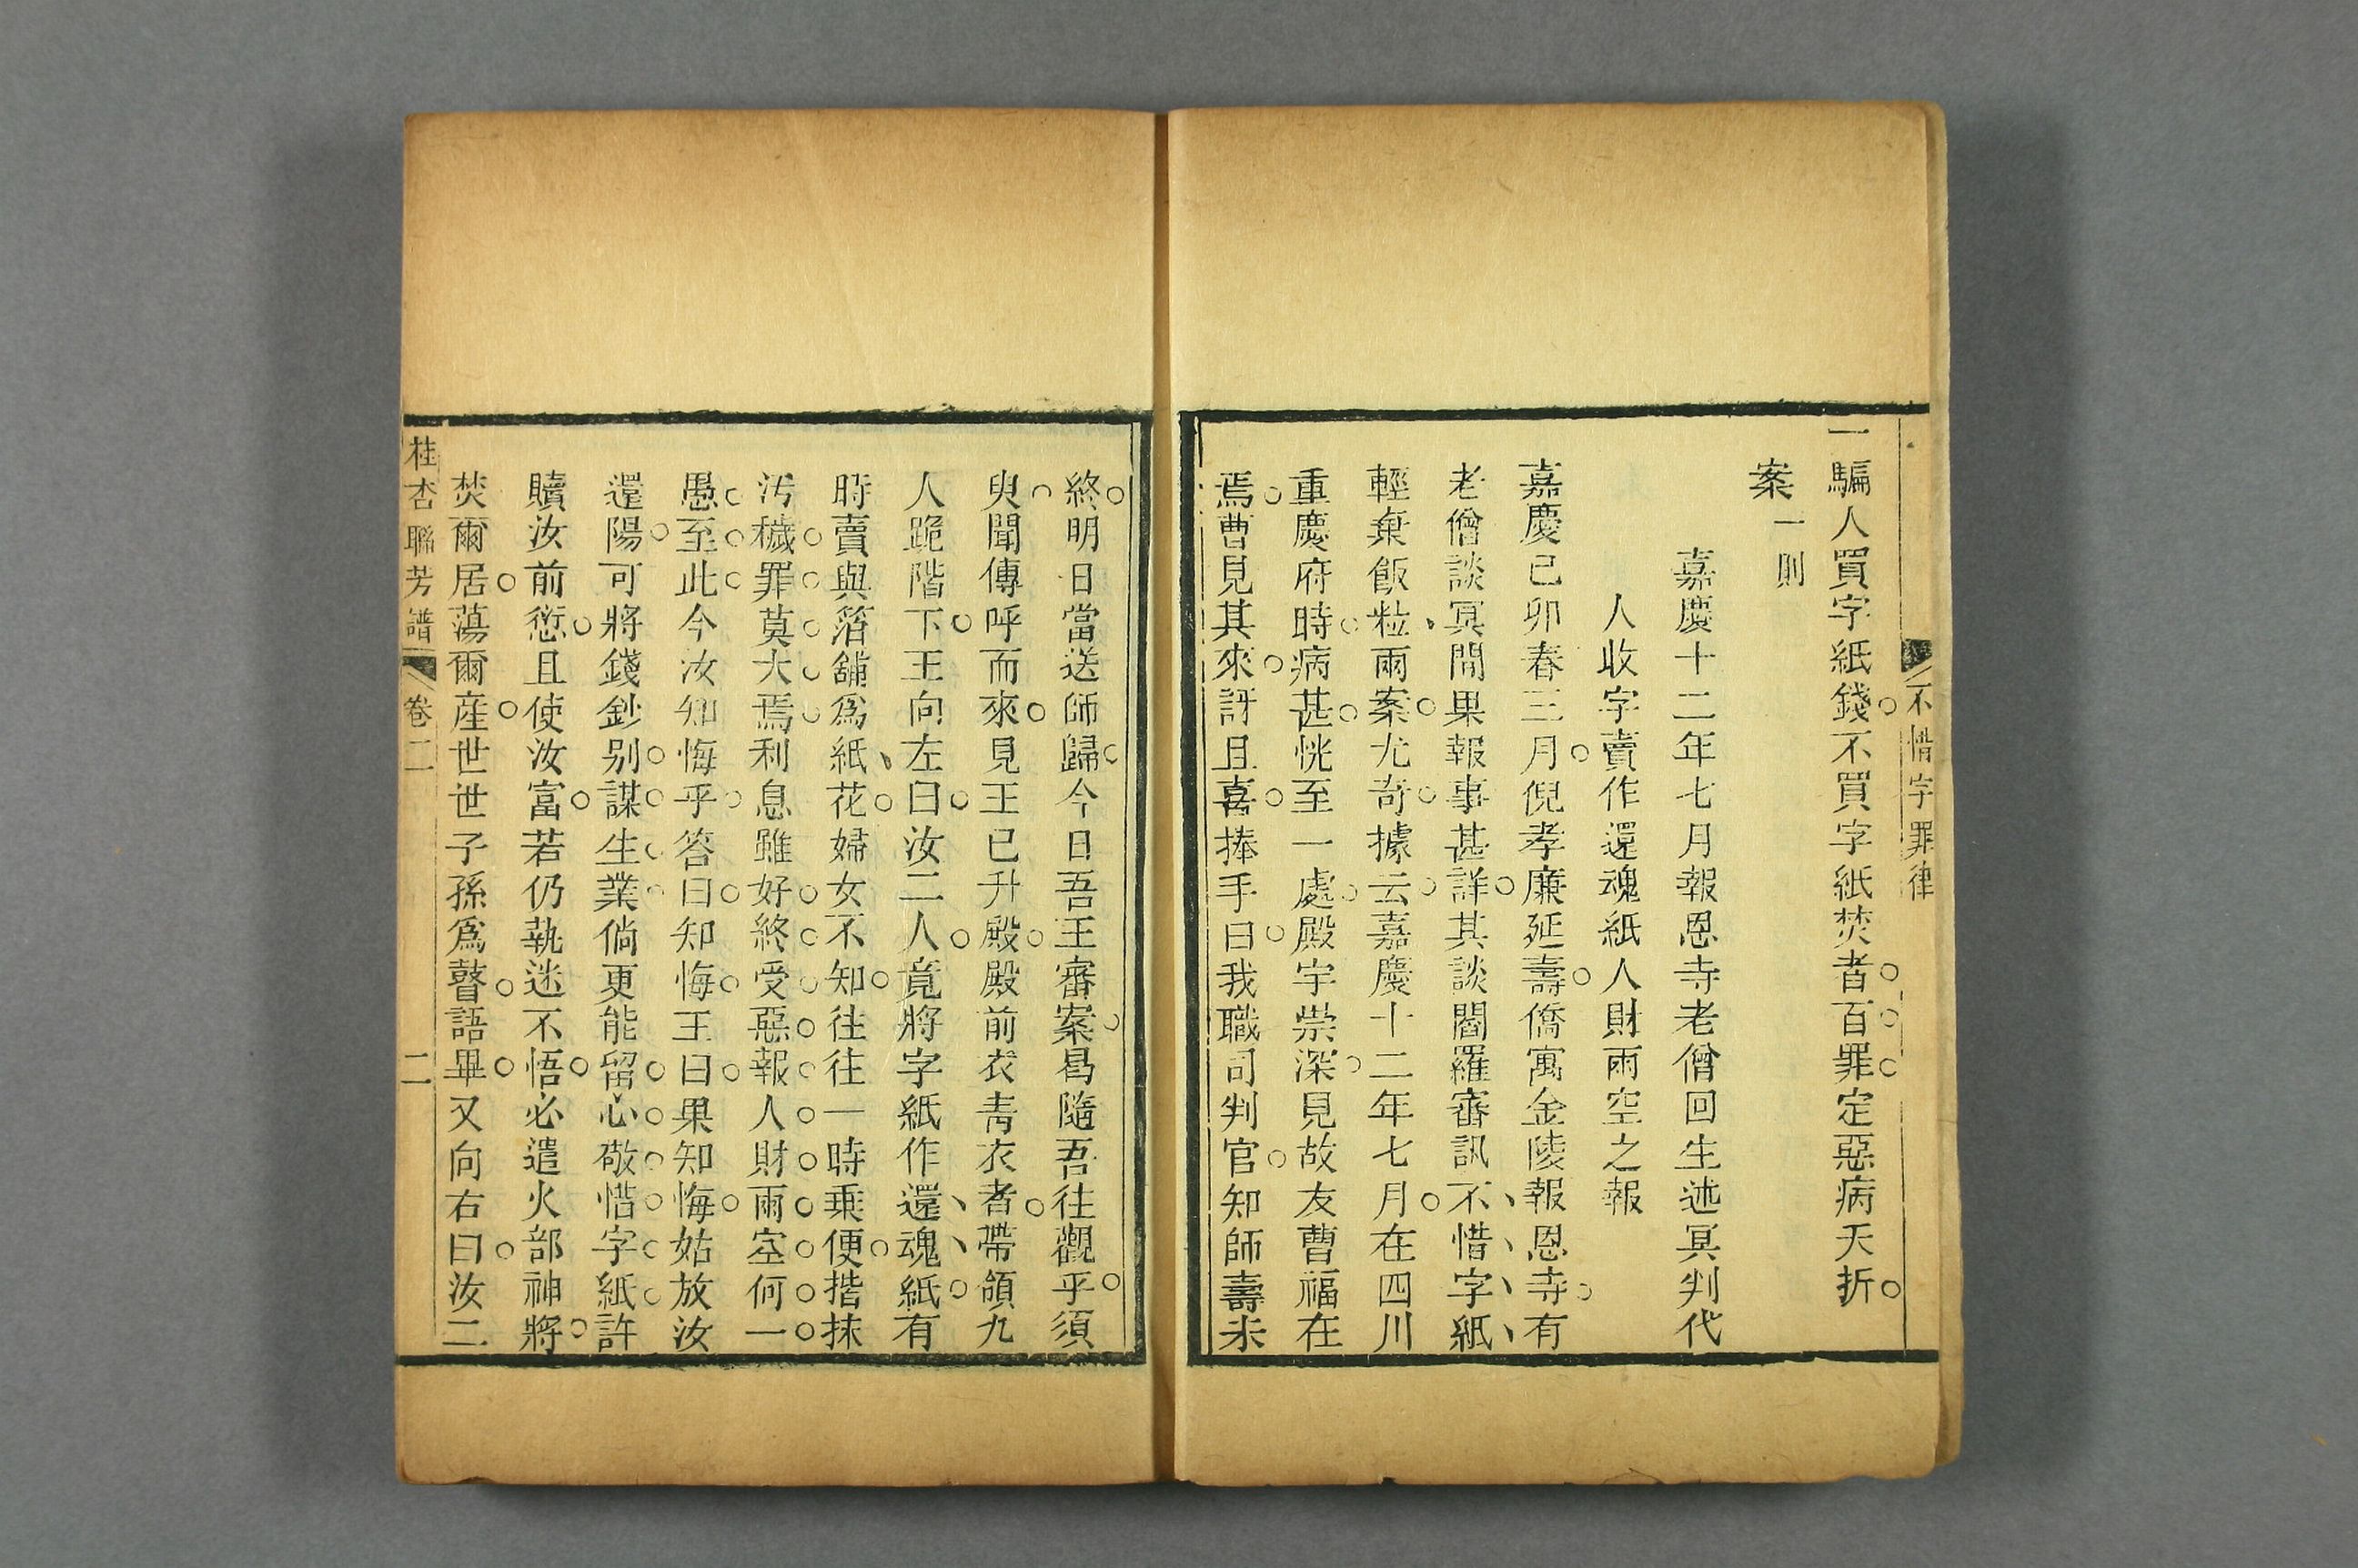 不惜字罪律
一騙人買字紙錢不買字紙焚者百罪定惡病夭折
案一則
嘉慶十二年七月報恩寺老僧回生述冥判代
人收字賣作還魂紙人財雨空之報
嘉慶己卯春三月倪孝廉延壽僑寓金陵報恩寺有
老僧談冥間果報事甚詳其談閻羅審訊不惜字紙
輕棄飯粒雨案尤奇據云嘉慶十二年七月在四川
重慶府時病甚恍至一處殿宇崇深見故友曹福在
焉曹見其來訝且喜捧手曰我職司判官知師壽未
終明日當送師歸今日吾王審案曷隨吾往觀乎須
臾聞傳呼而來見王已升殿殿前衣青衣者帶領九
人跪階下王向左曰汝二人竟將字紙作還魂紙有
時賣與箔舖為紙花婦女不知往往一時乗便揩抹
汚穢罪莫大焉利息雖好終受惡報人財雨空何一
愚至此今汝知悔乎答曰知悔王曰果知悔姑放汝
還陽可將錢鈔別謀生業倘更能留心敬惜字紙許
贖汝前愆且使汝富若仍執迷不悟必遣火部神將
焚爾居蕩爾産世世子孫為瞽語畢又向右曰汝二
桂杏聯芳譜 卷二 二